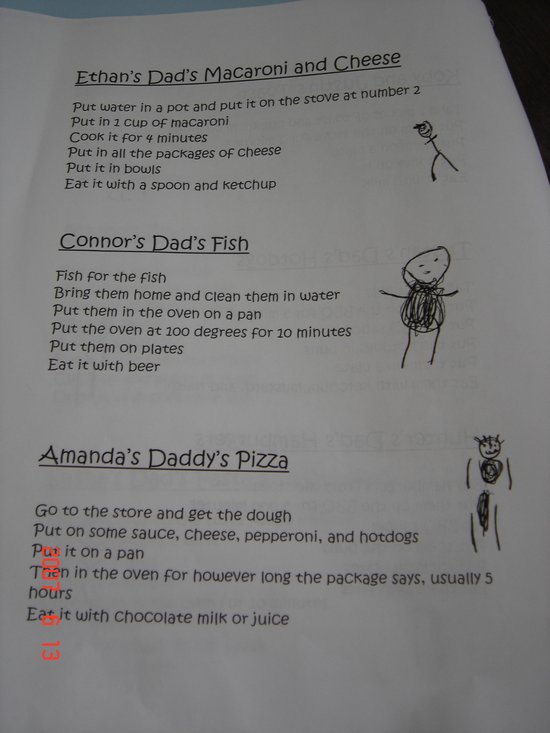 Ethan's Dad's Macaroni and Cheese
Put water in a pot and put it on the stove at number 2
Put in 1 cup of macaroni
Cook it for 4 minutes
Put in all the packages of cheese
Put it in bowls
Eat it with a spoon and ketchup
Connor's Dad's Fish
Fish for the fish
Bring them home and clean them in water
Put them in the oven on a pan
Put the oven at 100 degrees for 10 minutes
Put them on plates
Eat it with beer
Amanda's Daddy's Pizza
Go to the store and get the dough
Put on some sauce, cheese, pepperoni, and hotdogs
Put it on a pan
Then in the oven for however long the package says, usually 5
hours
Eat it with chocolate milk or juice
2007 6 13